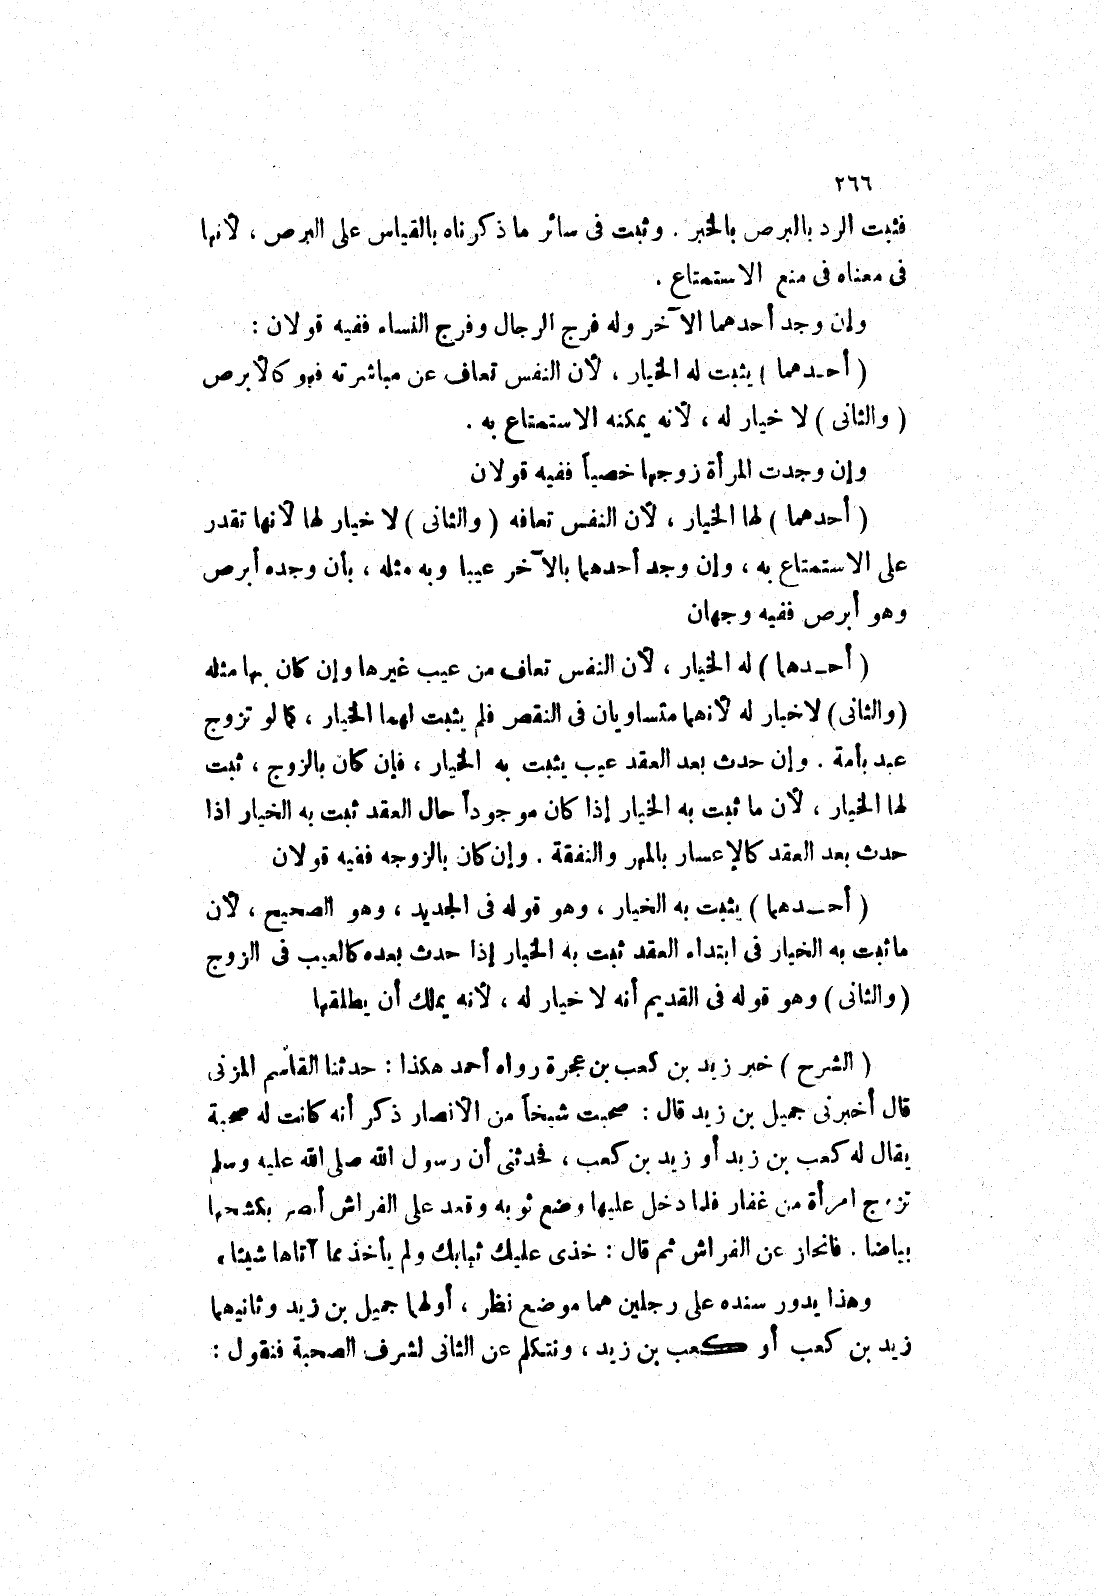 ٢٦٦
فثبت الرد بالبرص بالخبر . وثبت فى سائر ما ذكرناه بالقياس على البرص ، لأنها
فى معناه فى منع الاستمتاع .
وإن وجد أحدهما الآخر وله فرج الرجال وفرج النساء ففيه قولان :
( أحدهما ) يثبت له الخيار ، لأن النفس تعاف عن مباشرته فهو كالأبرص
( والثانى ) لا خيار له ، لأنه يمكنه الاستمتاع به .
وإن وجدت المرأة زوجها خصياً ففيه قولان
( أحدهما ) لها الخيار ، لأن النفس تعافه ( والثانى ) لا خيار لها لأنها تقدر
على الاستمتاع به ، وإن وجد أحدهما بالآخر عيبا وبه مثله ، بأن وجده أبرص
وهو أبرص ففيه وجهان
( أحدها ) له الخيار ، لأن النفس تعاف من عيب غيرها وإن كان بها مثله
(والثانى) لاخيار له لأنهما متساويان فى النقص فلم يثبت لهما الخيار ، كما لو تزوج
عبد بأمة . وإن حدث بعد العقد عيب يثبت به الخيار ، فإن كان بالزوج ، ثبت
لها الخيار ، لأن ما ثبت به الخيار إذا كان موجوداً حال العقد ثبت به الخيار اذا
حدث بعد العقد كالإعسار بالمهر والنفقة . وإن كان بالزوجه ففيه قولان
( أحدهما ) يثبت به الخيار ، وهو قوله فى الجديد ، وهو الصحيح ، لأن
ماثبت به الخيار فى ابتداء العقد ثبت به الخيار إذا حدث بعده كالعيب فى الزوج
( والثانى ) وهو قوله فى القديم أنه لا خيار له ، لأنه يملك أن يطلقها
( الشرح ) خبر زيد بن كعب بن عجرة رواه أحمد هكذا : حدثنا القاسم المزنى
قال أخبرنى جميل بن زيد قال : صحبت شيخاً من الأنصار ذكر أنه كانت له صحبة
يقال له كعب بن زيد أو زيد بن كعب ، فحدثنى أن رسول الله صلى الله عليه وسلم
تزوج امرأة من غفار فلما دخل عليها وضع ثوبه وقعد على الفراش أبصر بكشحها
بياضا . فانحاز عن الفراش ثم قال : خذى عليك ثيابك ولم يأخذ مما آتاها شيئا ،
وهذا يدور سنده على رجلين هما موضع نظر ، أولهما جميل بن زيد وثانيهما
زيد بن كعب أو كعب بن زيد ، ونتكلم عن الثانى لشرف الصحبة فنقول :